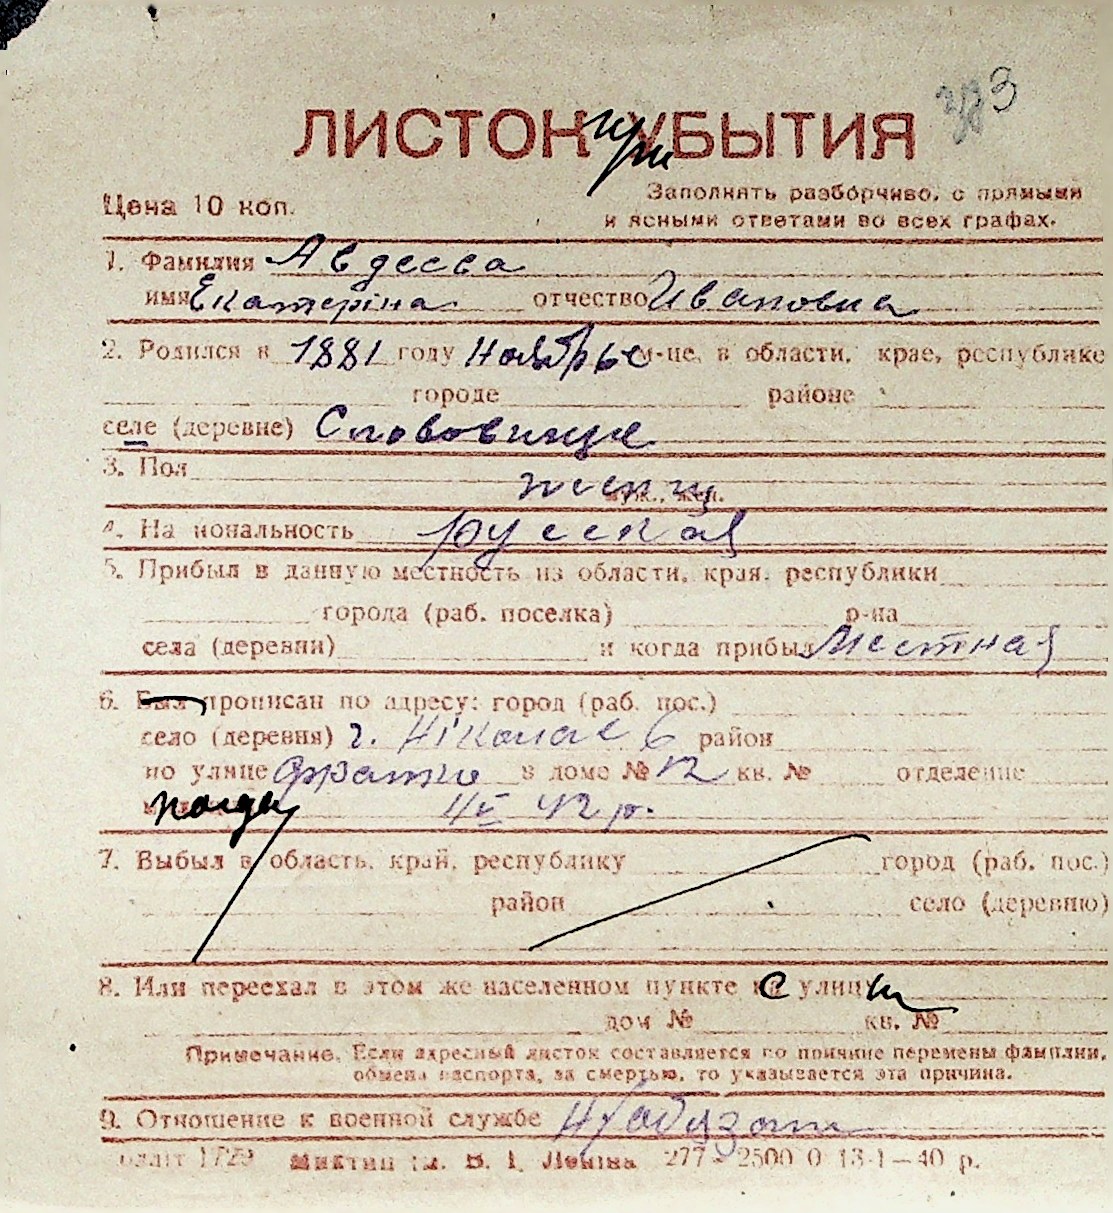 ЛИСТОК при УБЫТИЯ
Цена 10 коп.
Заполнять разборчиво, с прямыми
и ясными ответами во всех графах.
1. Фамилия Авдеева
имя Екатеріна отчество Ивановна
2. Родился в 1881 году Ноябрье м-це, в области, крае, республике
городе районе
селе (деревне)
3. Пол женщ муж., жен.
4. На иональность русская
5. Прибыл в данную местность из области, края, республики
города (раб. поселка) р-на
села (деревни) и когда прибыл Местная
6. Был прописан по адресу: город (раб. пос.)
село (деревня) г. Ніколаев район
по улице в доме № 12 кв. № отделение
когда 4/V 42 р.
7. Выбыл в область, край, республику город (раб. пос.)
район село (деревню)
8. Или переехал в этом же населенном пункте с улицы
дом № кв. №
Примечание. Если адресный листок составляется по причине перемены фамилии,
обмена паспорта, за смертью, то указывается эта причина.
9. Отношение к военной службе Н/обязат
1723 им. В. І. Леніна 277 – 2500 0 13-1—40 р.